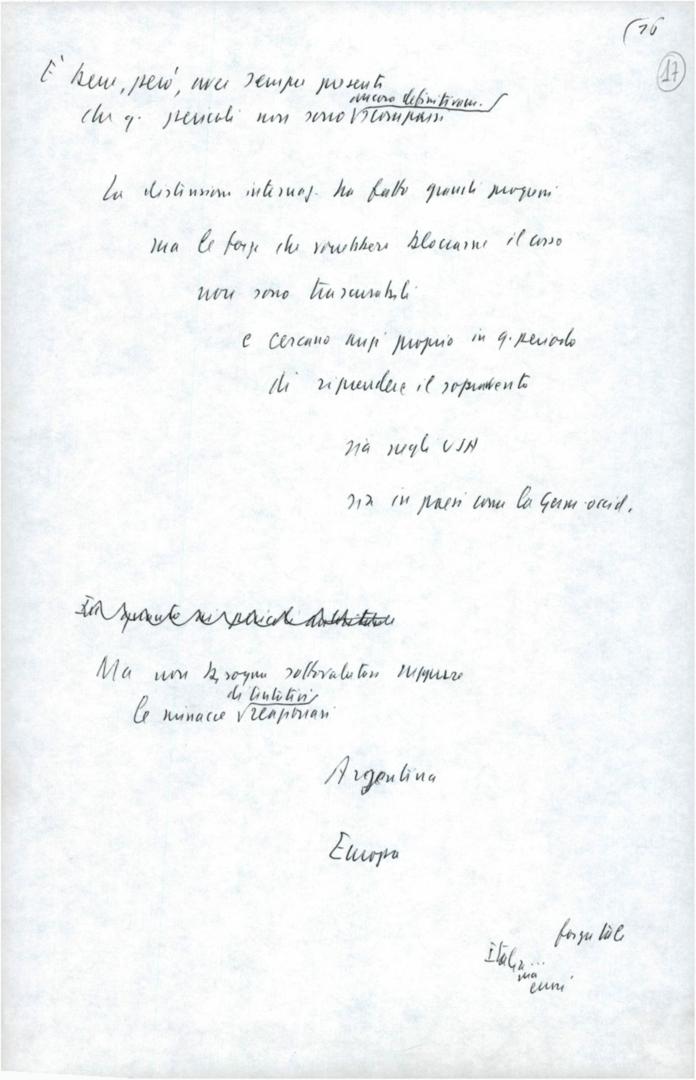 (16
17
È bene, però, aver sempre presenti
ancora definitivam.
che q. pericoli non sono scomparsi
La distensione internaz. ha fatto grandi progressi
ma le forze che vorrebbero bloccarne il corso
non sono trascurabili
e cercano anzi proprio in q. periodo
di riprendere il sopravvento
sia negli USA
sia in paesi come la Germ. occid.
Ma non bisogna sottovalutare neppure
di tentativi
le minacce reazionari
Argentina
Europa
Italia...
ma